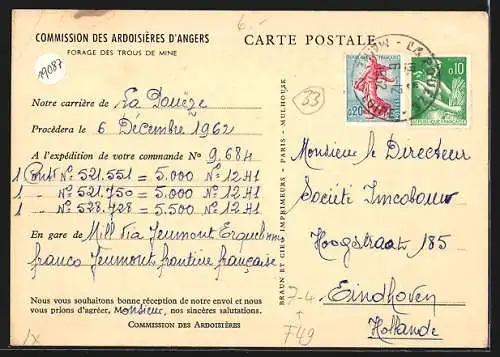 6.-
COMMISSION DES ARDOISIÈRES D'ANGERS
FORAGE DES TROUS DE MINE
19087
CARTE POSTALE
RÉPUBLIQUE FRANÇAISE
0,20
0,10
33
Notre carrière de La Pouëze
Procédera le 6 Décembre 1962
A l'expédition de votre commande No 9.684
1 N° 521.551 = 5.000 N° 12 A1
1 - N° 521.750 = 5.000 N° 12 A1
1 - N° 528.728 = 5.500 N° 12 A1
En gare de Mill via Jeumont Erquelinnes
franco Jeumont frontière française
Nous vous souhaitons bonne réception de notre envoi et nous
vous prions d'agréer, Monsieur, nos sincères salutations.
COMMISSION DES ARDOISIÈRES
BRAUN ET CIE, IMPRIMEURS - PARIS - MULHOUSE
Monsieur le Directeur
Société Imcobouw
Hoogstraat 185
Eindhoven
Hollande
7-4
F49